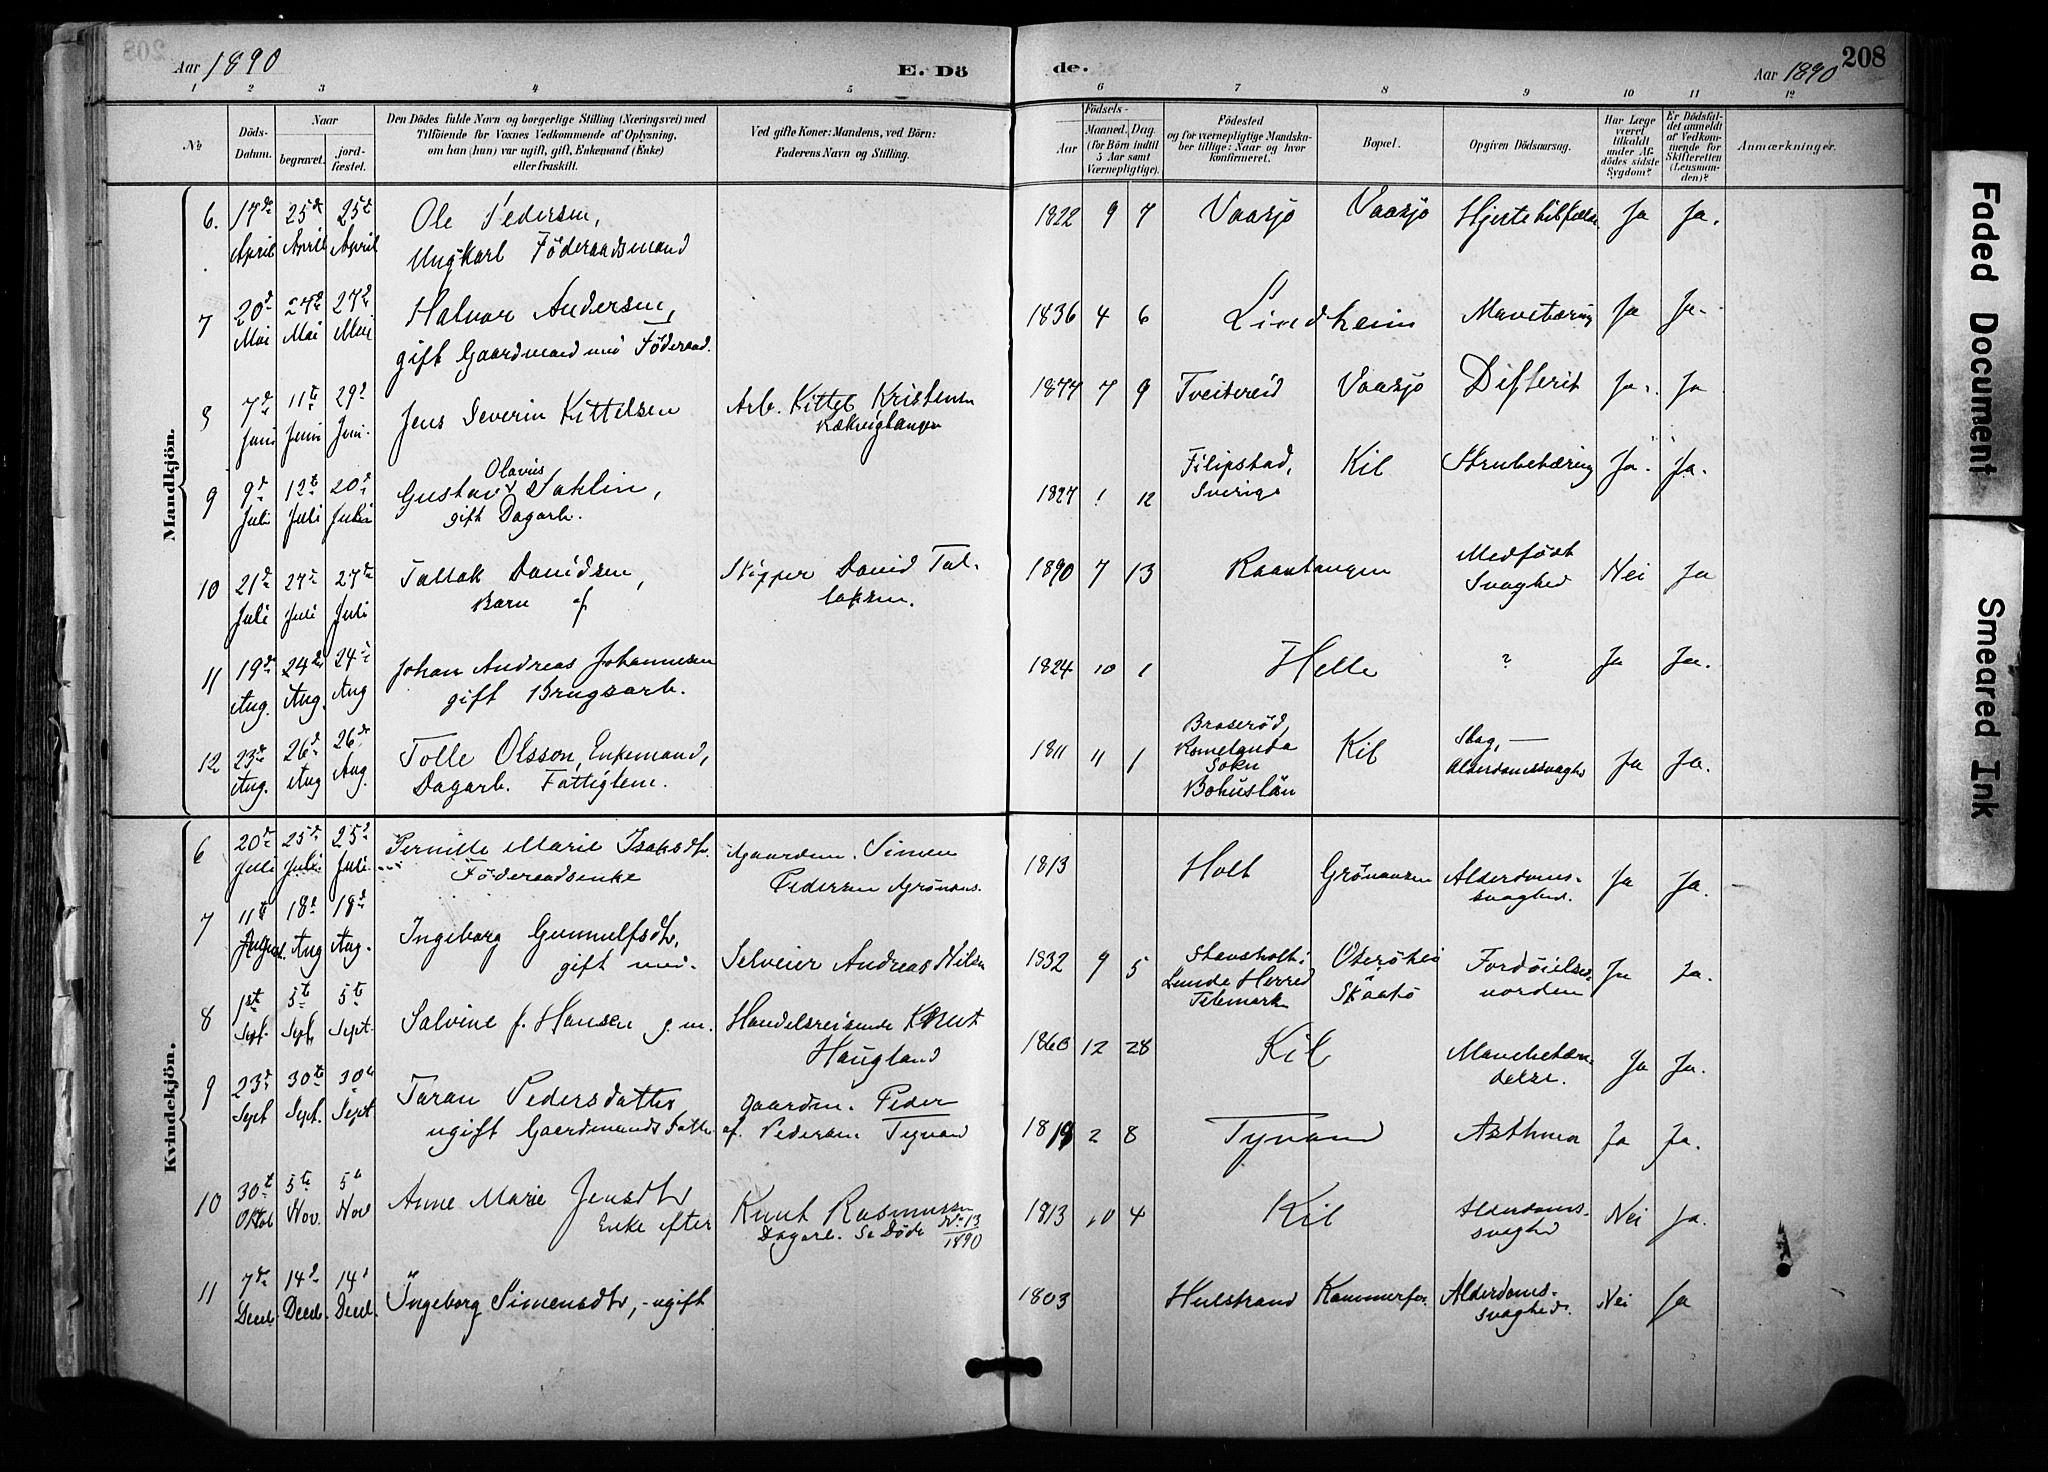 208
Aar 1890
E. Dö de.
Aar 1890
1 2 3 4 5 6 7 8 9 10 11 12
No
Döds-Datum.
Naar
begravet.
jord-fæstet.
Den Dödes fulde Navn og borgerlige Stilling (Næringsvei) med
Tilföiende for Voxnes Vedkommende af Oplysning,
om han (hun) var ugift, gift, Enkemand (Enke)
eller fraskilt.
Ved gifte Koner: Mandens, ved Börn:
Faderens Navn og Stilling.
Födsels-
Aar
Maaned. Dag
(for Börn indtil
5 Aar samt
Værnepligtige).
Födested
og for værnepligtige Mandska-
ber tillige: Naar og hvor
konfirmeret.
Bopæl.
Opgiven Dödsaarsag.
Har Læge
været
tilkaldt
under Af-
dödes sidste
Sygdom?
Er Dödsfal-
det anmeldt
af Vedkom-
mende for
Skifteretten
(Lensman-
den)?
Anmærkninger.
Mandkjön.
6. 17de April 25de April 25te April Ole Pedersen, 1822 9 7 Vaasjø Vaasjø Ja Ja.
Ungkarl Föderaadsmand
7 20de Mai 27de Mai 27de Mai Halvor Andersen, 1836 4 6 Lindheim Mavetæring Ja Ja.
gift Gaardmand med Föderaad.
8 7de Juni 11te Juni 29de Juni. Jens Severin Kittelsen Arb. Kittel Kristensen 1877 7 9 Tveitereid Vaasjø Differit Ja. Ja
9 9de Juli 12te Juli 20de Juli Gustav Olavius Sahlin, 1827 1 12 Filipstad, Sverige Kil Strubetæring Ja. Ja.
gift Dagarb.
10 21de Juli 27de Juli 27de Juli Tallak Davidsen, Skipper David Tal- 1890 7 13 Medfödt Svaghed Nei Ja
Barn af laksen.
11 19de Aug. 24de Aug. 24de Aug Johan Andreas Johannesen 1824 10 1 Helle ? Ja Ja.
gift Brugsarb.
12 23de Aug. 26de Aug 26de Aug. Tolle Olsson, Enkemand, 1811 11 1 Braseröd, Romelanda Sokn Bohuslän Kil Slag, — Alderdomssvaghed Ja Ja.
Dagarb. Fattiglem.
Kvindekjön.
6 20de Juli 25de Juli 25de Juli Pernille Marie Isaksdtr. Gaardm. Simen 1813 Holt Grönaasen Alderdoms- svaghed. Ja Ja.
Föderaadsenke Pedersen Grönaas.
7 11te August. 18de Aug 18de Aug. Ingeborg Gunnulfsdtr, 1832 9 5 Stavsholt i Lunde Herred Telemark Skaatø Fordöielses- uorden Ja Ja.
gift med. Selveier Andreas Nilsen
8 1ste Sept. 5te Sept. 5te Sept. Salvine f. Hansen g. m. Handelsreisende Knut 1860 12 28 Kil Mavebetæn- delse. Ja Ja.
Haugland
9 23de Sept 30te Sept. 30te Sept. Taran Pedersdatter Gaardm. Peder 1819 2 8 Tyvand Asthma Ja Ja.
ugift Gaardmands Datter af Pedersen Tyvand
10 30te Oktob 5te Nov. 5te Nov Anne Marie Jensdtr Knut Rasmussen 1813 10 4 Kil Alderdoms- svaghed Nei Ja.
Enke efter Dagarb. Se Döde No 13 1890
11 7de Decb. 14de Decb. 14de Decb. Ingeborg Simensdtr, - ugift 1803 Hulstrand Kammerfos. Alderdoms- svaghed. Nei Ja
Faded Document
Smeared Ink